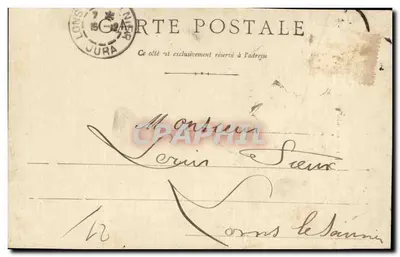 LONS-LE-SAUNIER
JURA
CARTE POSTALE
Ce côté est exclusivement réservé à l'adresse
Monsieur
Louis
Lons le Saunier
12
CPAPHIL